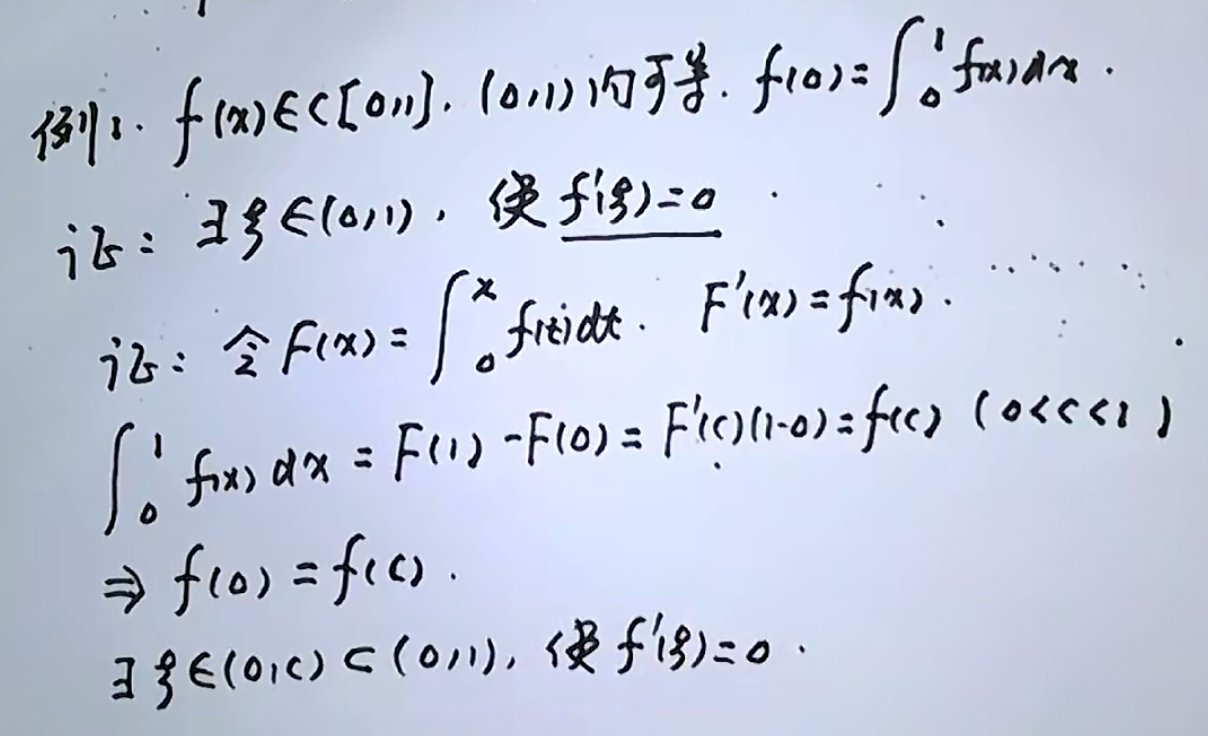 例1. f(x)∈C[0,1]. (0,1)内可导. f(0)=∫₀¹f(x)dx.
证: ∃ξ∈(0,1), 使f'(ξ)=0
证: 令F(x)=∫₀ˣf(t)dt. F'(x)=f(x).
∫₀¹f(x)dx=F(1)-F(0)=F'(c)(1-0)=f(c) (0<c<1)
⇒f(0)=f(c).
∃ξ∈(0,c)⊂(0,1), 使f'(ξ)=0.